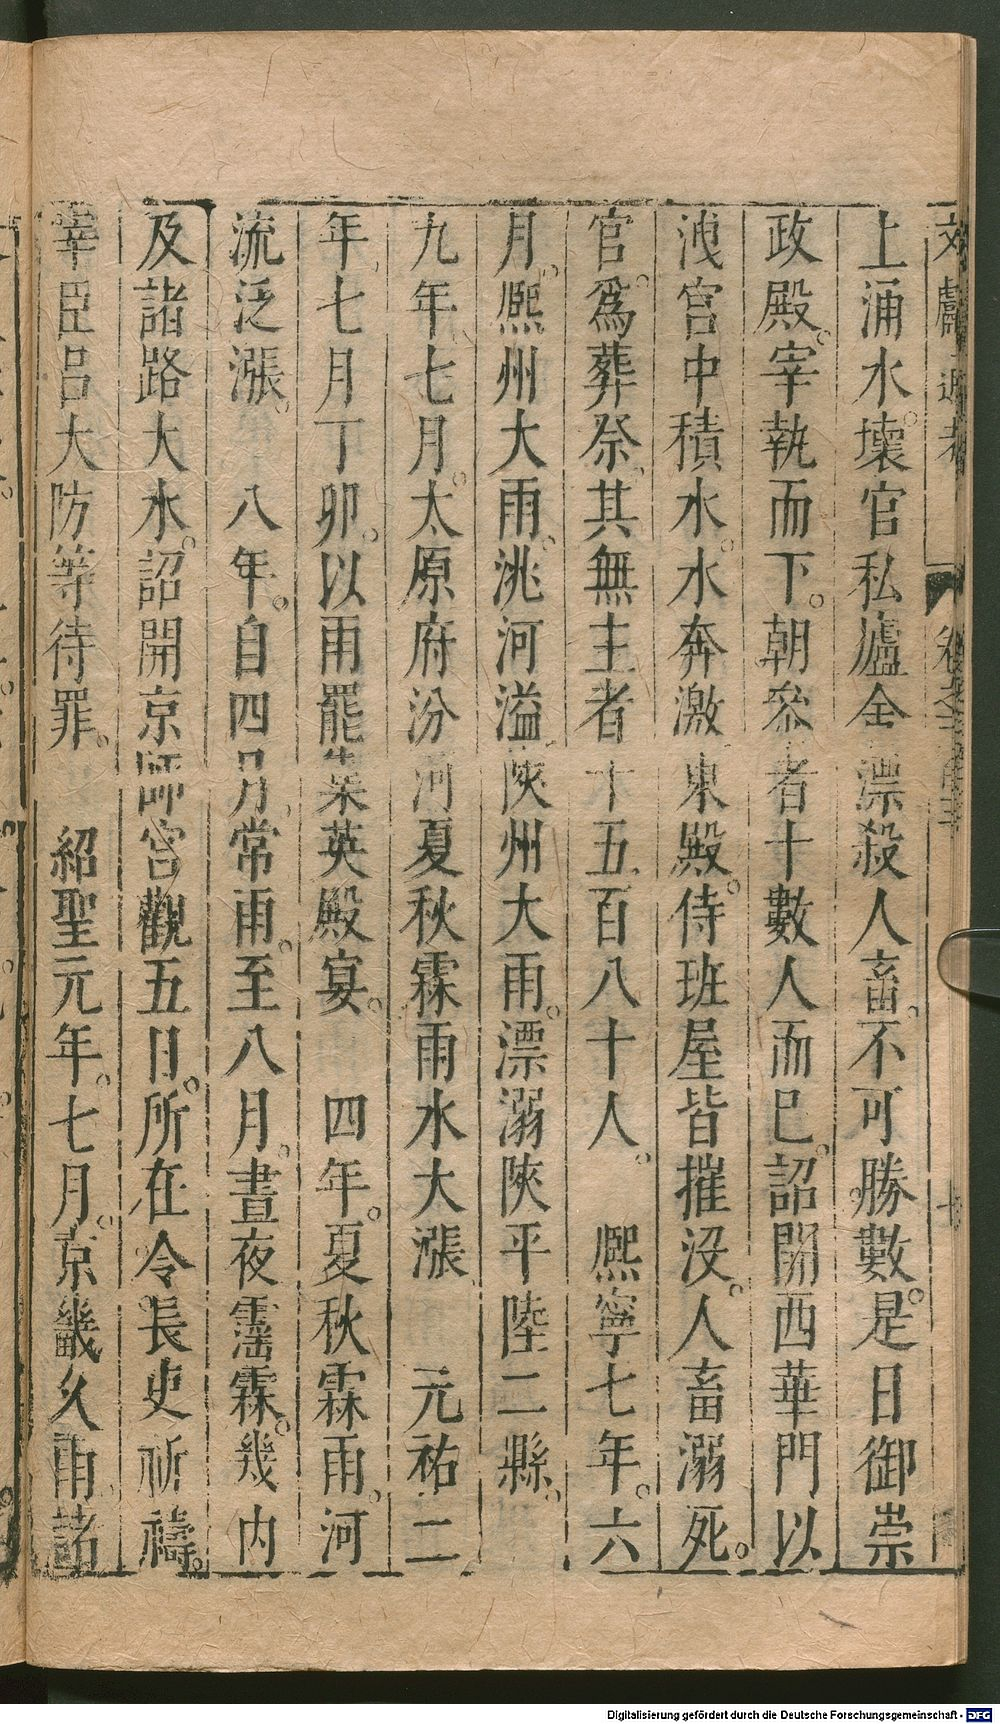 文獻通考
上涌水。壞官私廬全漂殺人畜。不可勝數。是日御崇
政殿。宰執而下。朝叅者十數人而已。詔開西華門以
洩宮中積水。水奔激東殿。侍班屋皆摧没。人畜溺死。
官爲葬祭。其無主者十五百八十人。　熙寧七年。六
月。熈州大雨。洮河溢陝州大雨。漂溺陝平陸二縣。
九年。七月。太原府汾河夏秋霖雨水大漲　元祐二
年七月丁卯。以雨罷集英殿宴。　四年。夏秋霖雨。河
流泛漲。　八年。自四月。常雨。至八月。晝夜霪霖。幾内
及諸路大水。詔開京師宮觀五日。所在令長吏祈禱。
宰臣吕大防等待罪。　紹聖元年。七月。京畿久雨諸
Digitalisierung gefördert durch die Deutsche Forschungsgemeinschaft - DFG